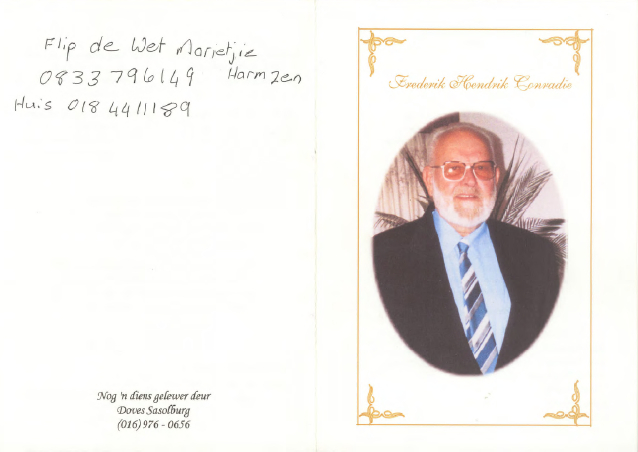 Flip de Wet Marietjie
0833 796149 Harmzen
Huis 018 4411189
Nog 'n diens gelewer deur
Doves Sasolburg
(016) 976 - 0656
Frederik Hendrik Conradie